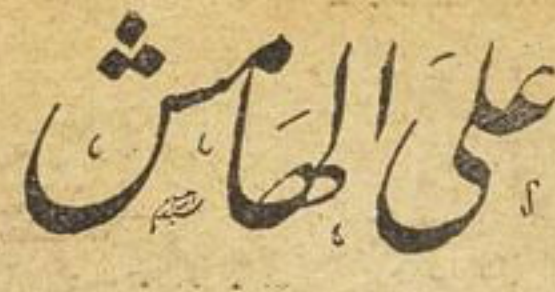 على الهامش